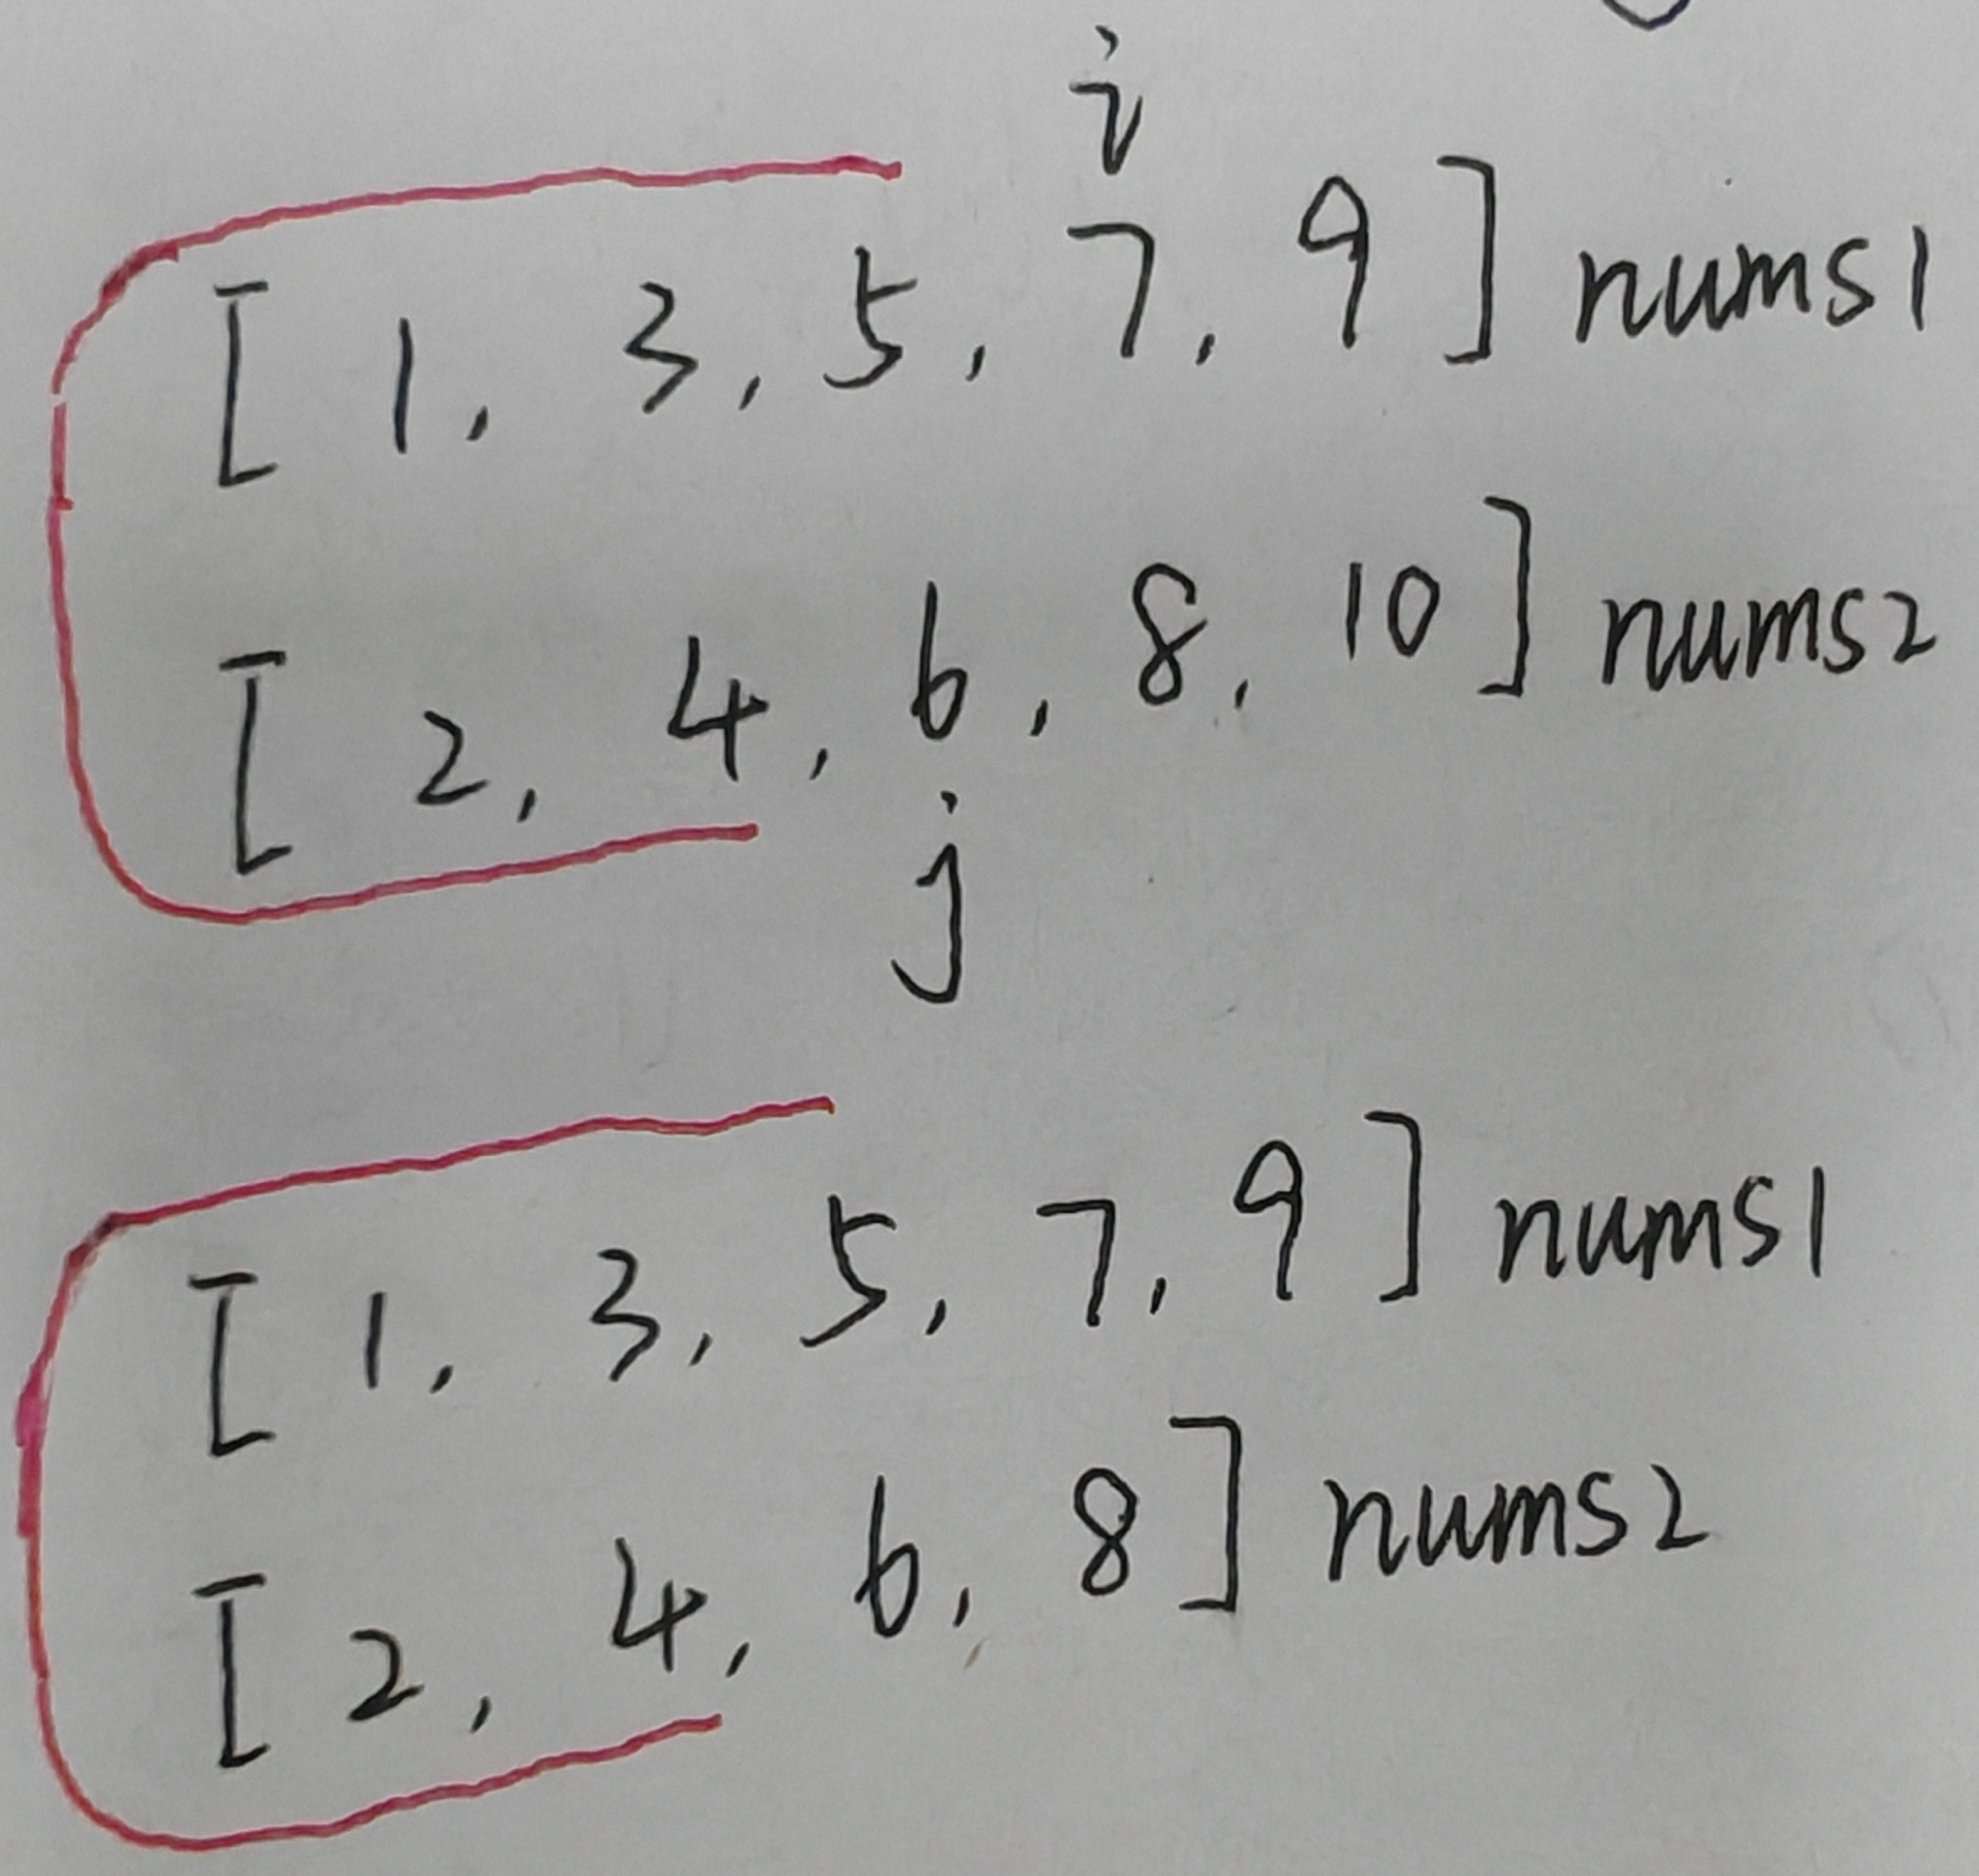 i
[ 1, 3, 5, 7, 9 ] nums1
[ 2, 4, 6, 8, 10 ] nums2
j
[ 1, 3, 5, 7, 9 ] nums1
[ 2, 4, 6, 8 ] nums2